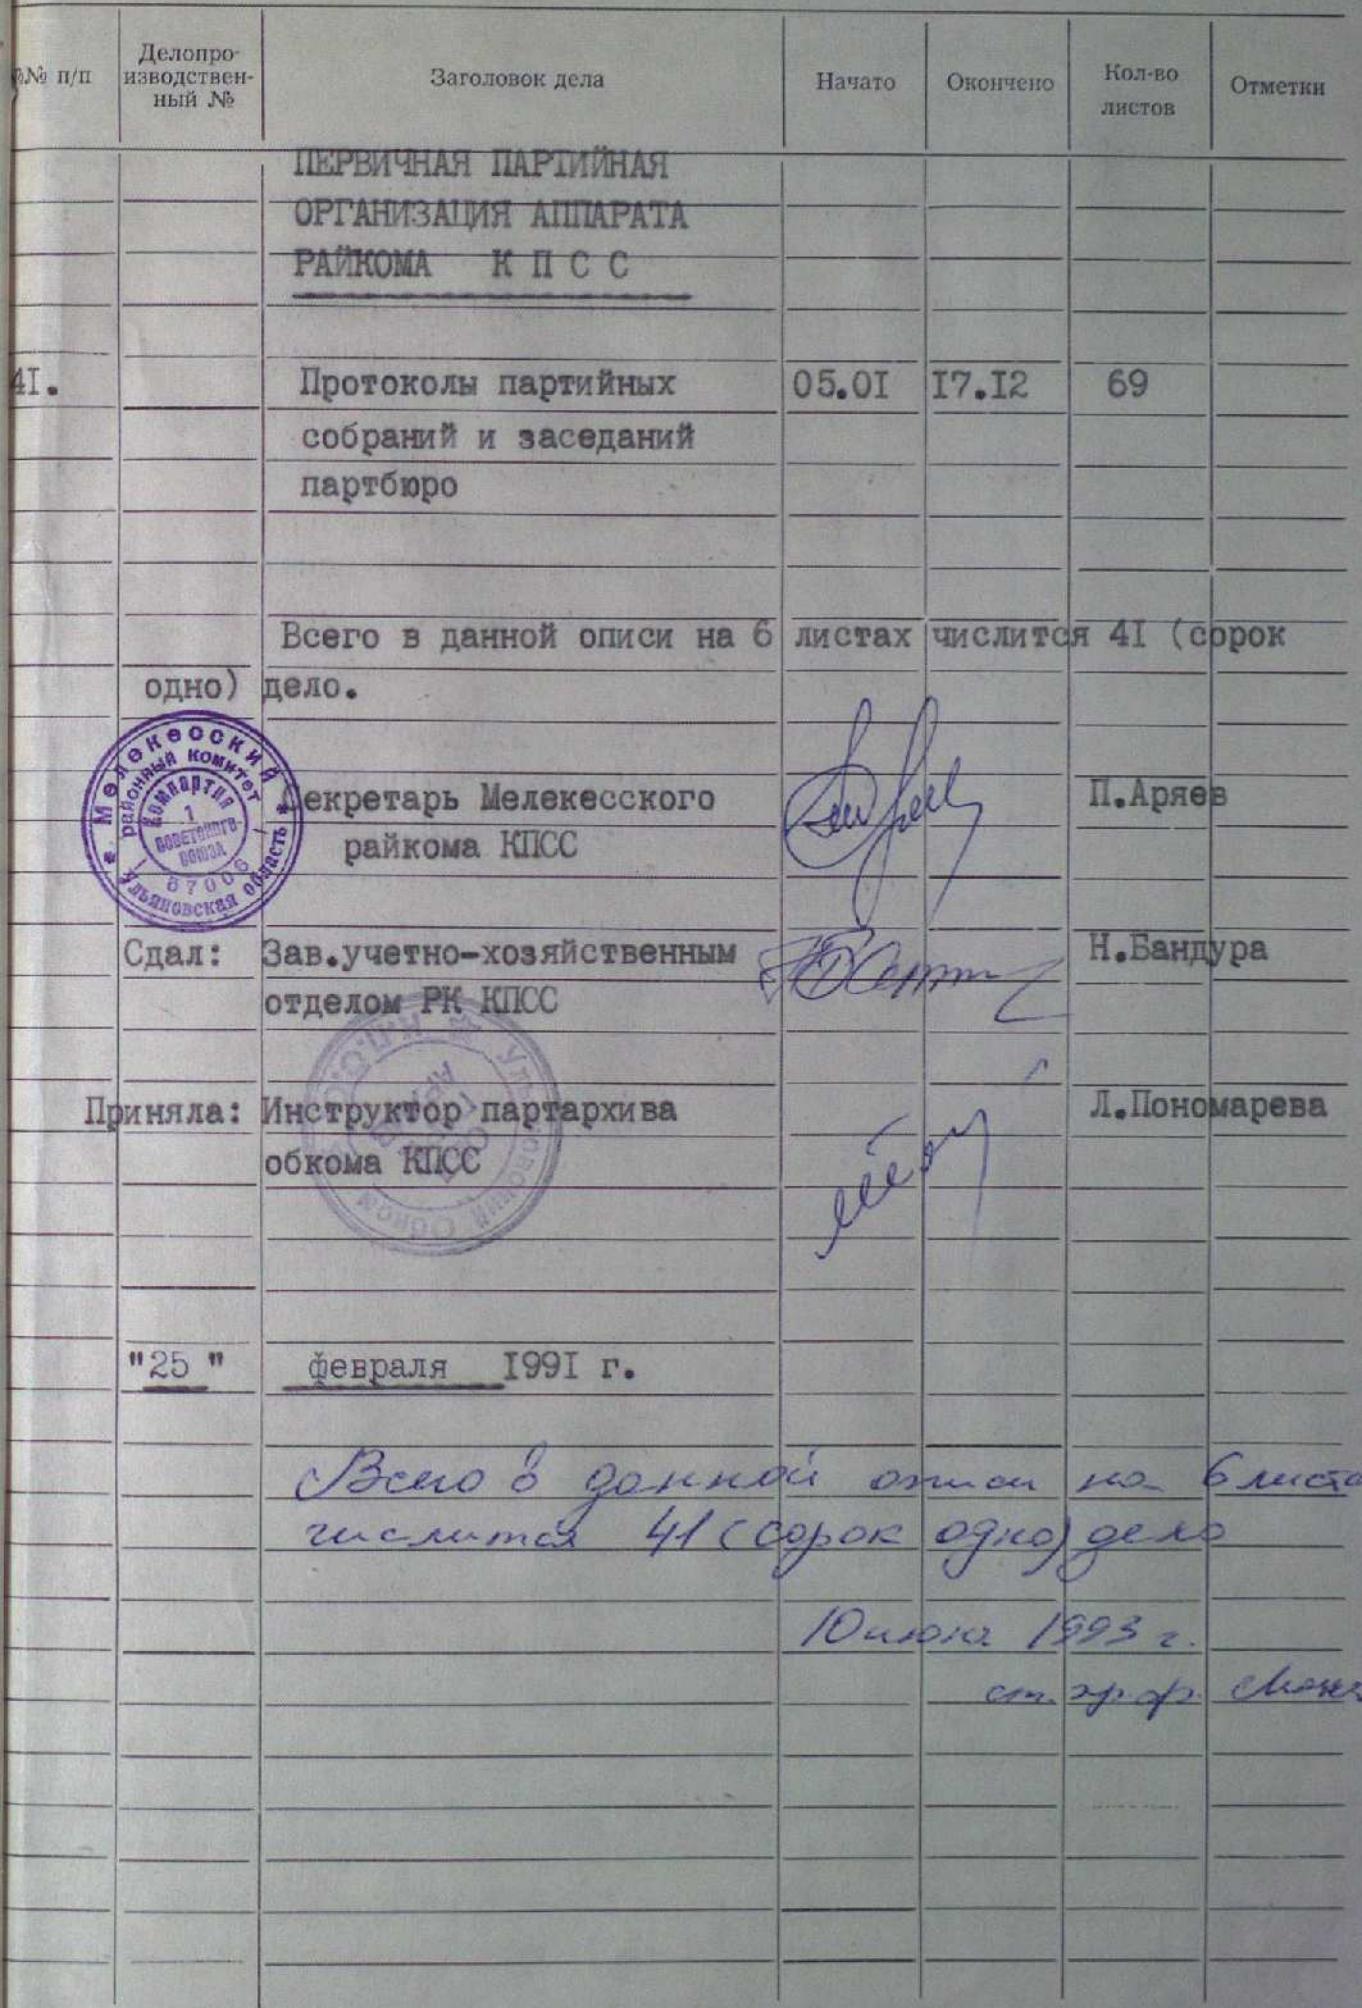 №№ п/п
Делопро-
изводствен-
ный №
Заголовок дела
Начато
Окончено
Кол-во
листов
Отметки
ПЕРВИЧНАЯ ПАРТИЙНАЯ
ОРГАНИЗАЦИЯ АППАРАТА
РАЙКОМА К П С С
4I. Протоколы партийных 05.0I I7.I2 69
собраний и заседаний
партбюро
Всего в данной описи на 6 листах числится 4I (сорок
одно) дело.
Мелекесский
районный комитет
Компартия
1
Советского
Союза
87006
Ульяновская область
Секретарь Мелекесского П.Аряев
райкома КПСС
Сдал: Зав.учетно-хозяйственным Н.Бандура
отделом РК КПСС
Приняла: Инструктор партархива Л.Пономарева
обкома КПСС
"25 " февраля I99I г.
Всего в данной описи на 6 листа
числится 41 (сорок одно) дело
10 июня 1993 г.
ст. хр. ф.